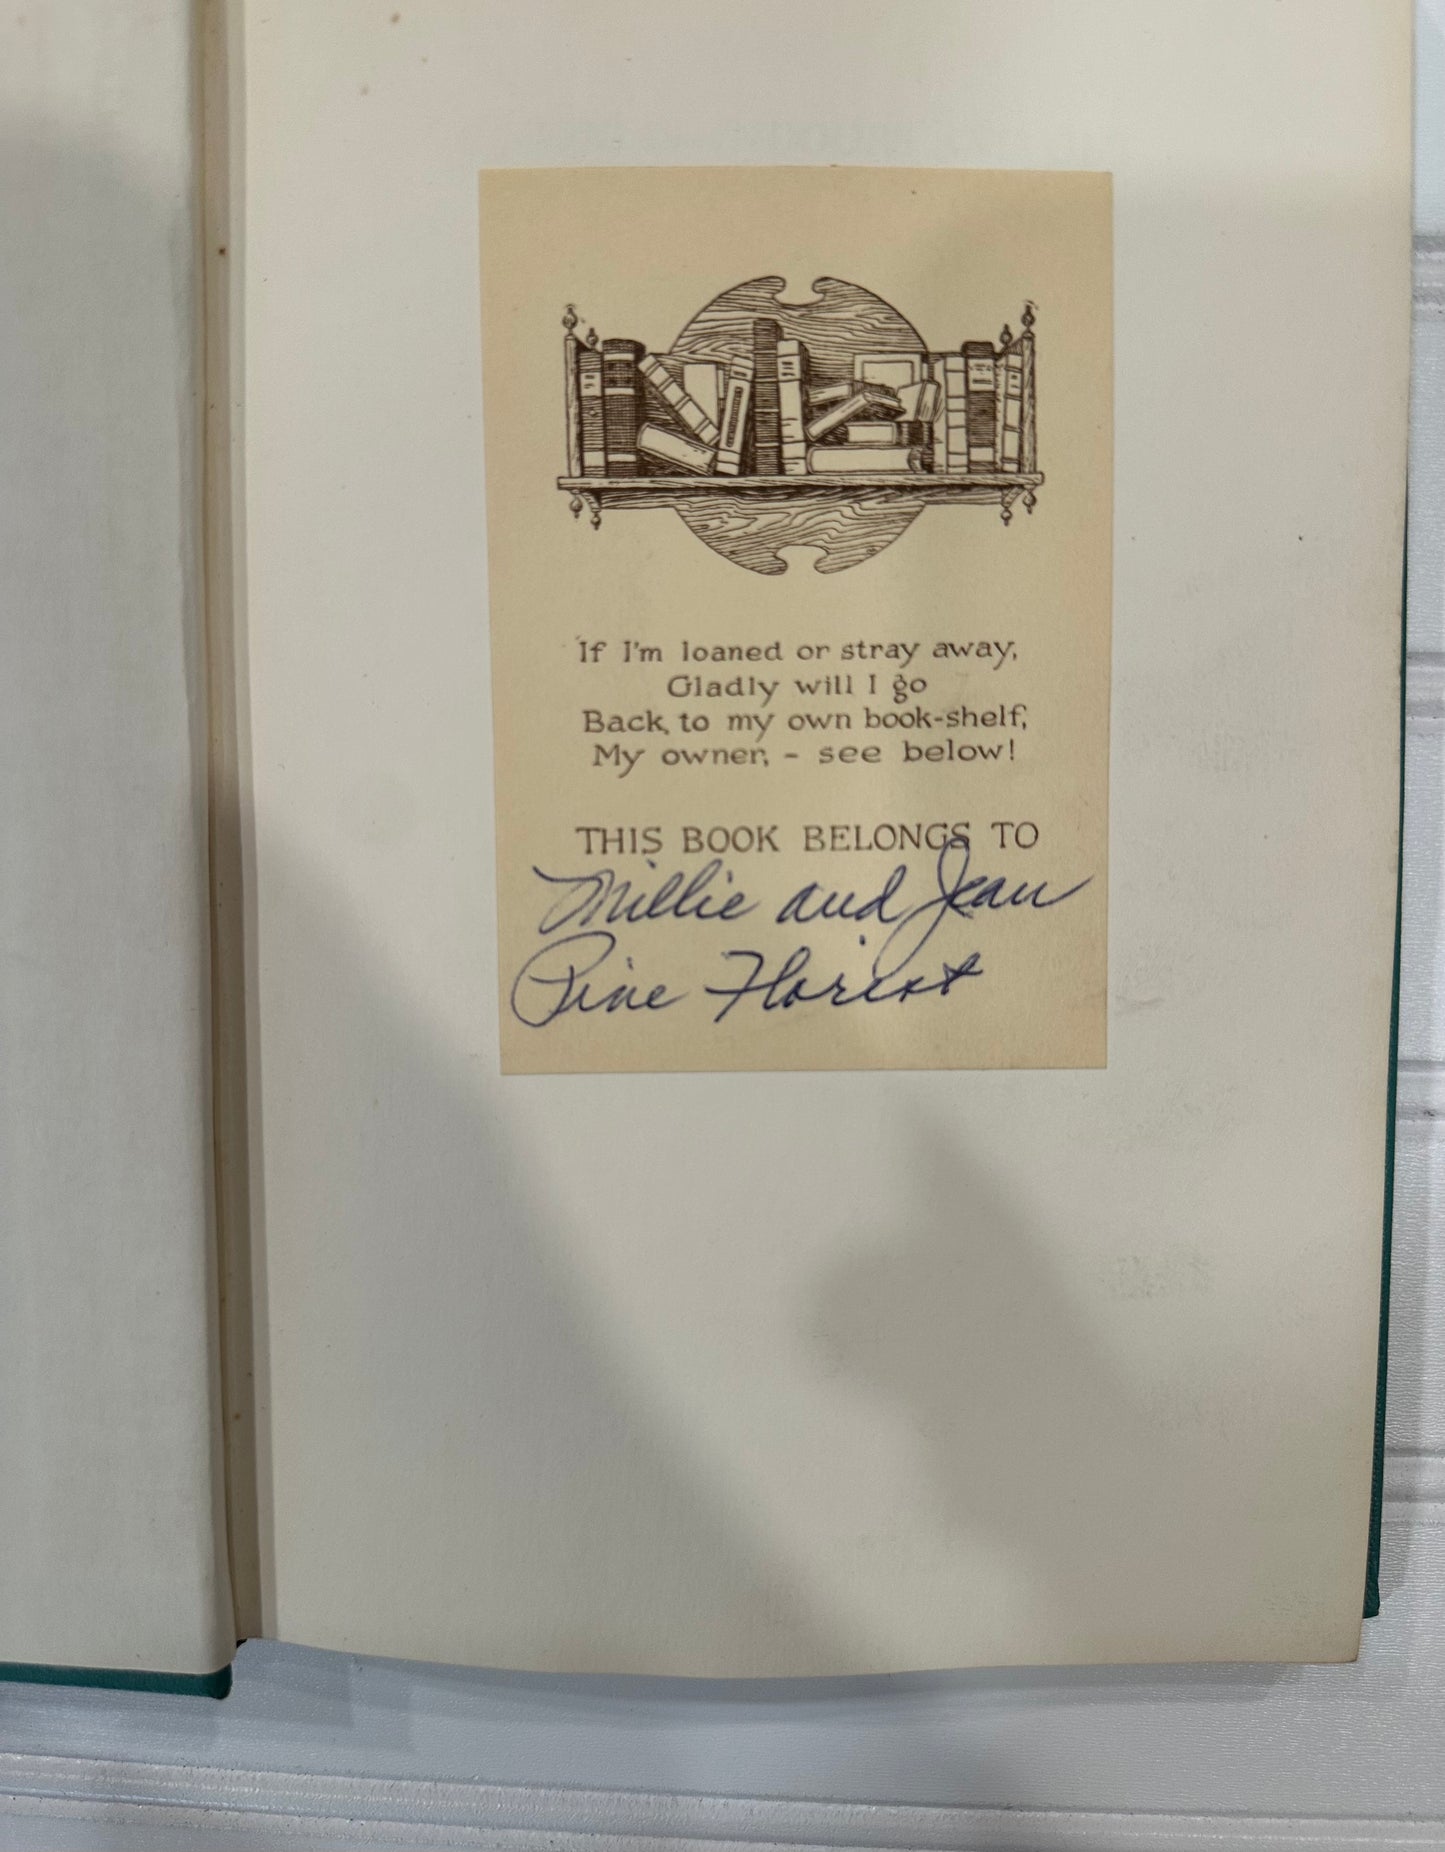 If I'm loaned or stray away,
Gladly will I go
Back, to my own book-shelf,
My owner, - see below!
THIS BOOK BELONGS TO
Millie and Jean
Pine Florist